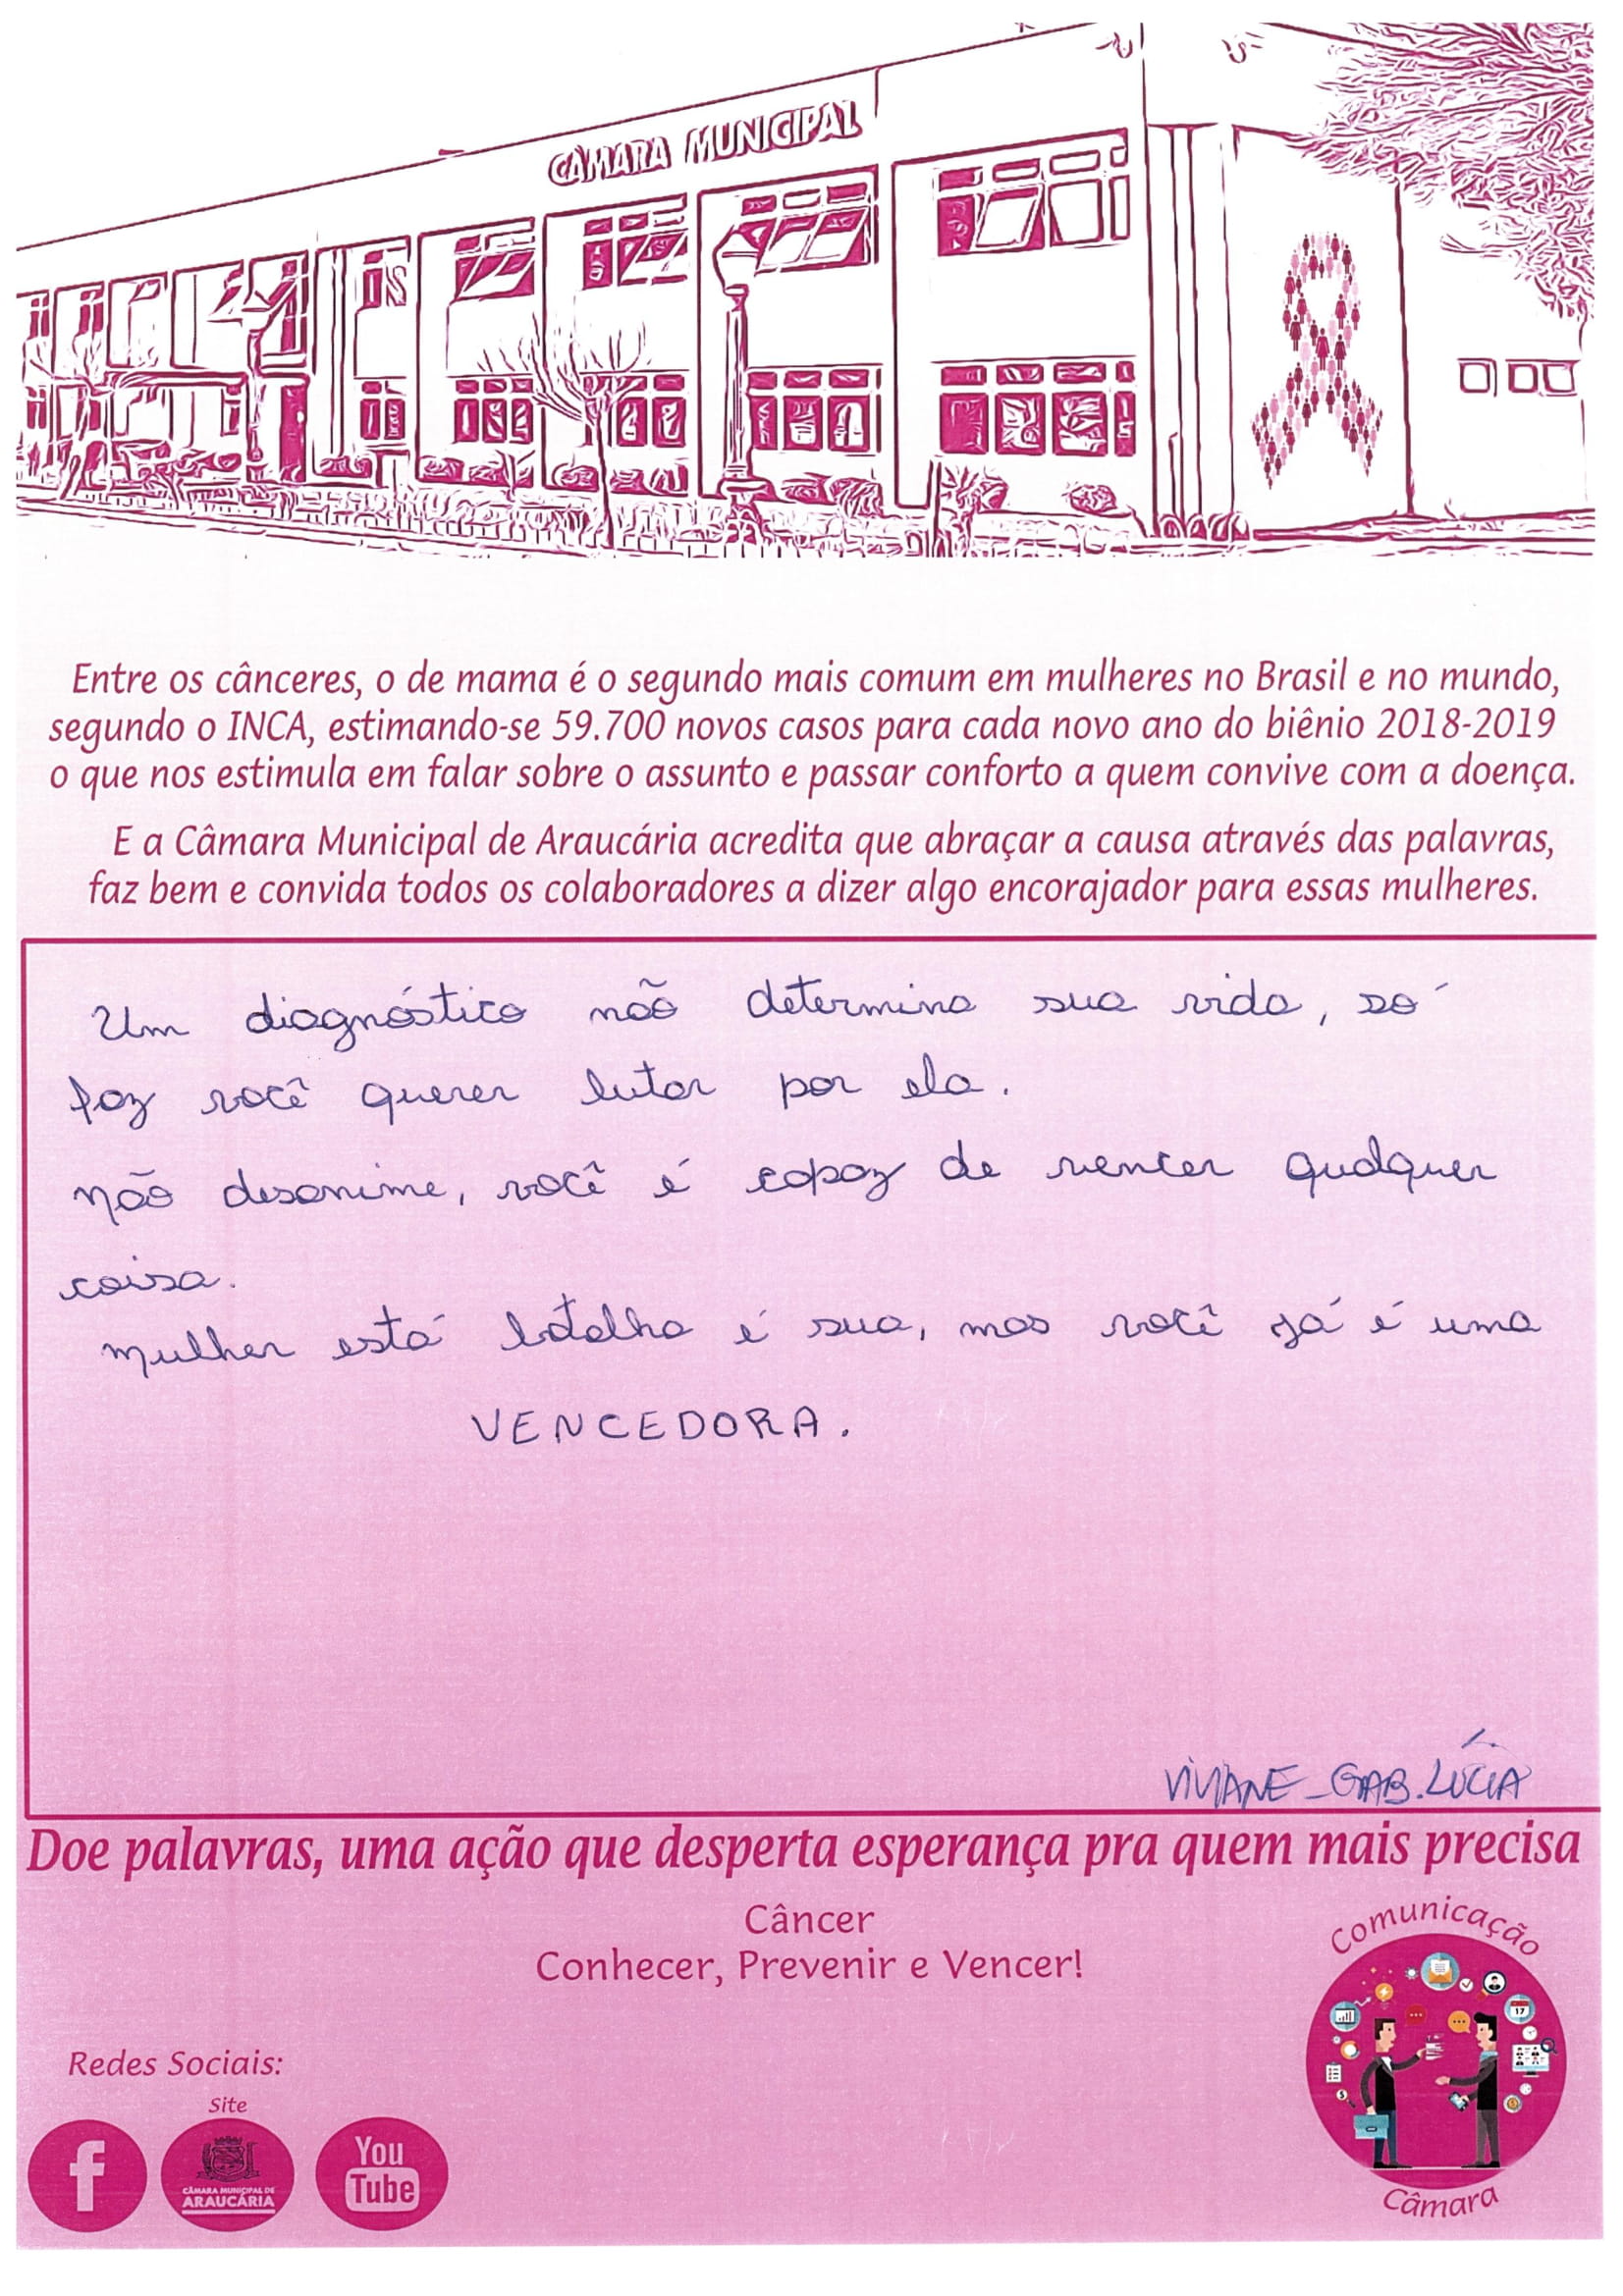 CÂMARA MUNICIPAL
Entre os cânceres, o de mama é o segundo mais comum em mulheres no Brasil e no mundo,
segundo o INCA, estimando-se 59.700 novos casos para cada novo ano do biênio 2018-2019
o que nos estimula em falar sobre o assunto e passar conforto a quem convive com a doença.
E a Câmara Municipal de Araucária acredita que abraçar a causa através das palavras,
faz bem e convida todos os colaboradores a dizer algo encorajador para essas mulheres.
Um diagnóstico não determina sua vida, só
faz você querer lutar por ela.
não desanime, você é capaz de vencer qualquer
coisa.
mulher está batalha é sua, mas você já é uma
VENCEDORA.
VIVIANE - GAB. LÚCIA
Doe palavras, uma ação que desperta esperança pra quem mais precisa
Câncer
Conhecer, Prevenir e Vencer!
Comunicação
17
Câmara
Redes Sociais:
Site
f
CÂMARA MUNICIPAL DE
ARAUCÁRIA
You
Tube